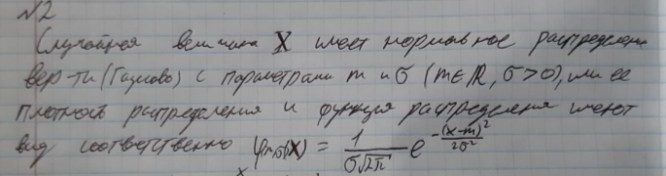 №2
Случайная величина X имеет нормальное распределение
вер-ти (Гауссово) с параметрами m и σ (m∈ℝ, σ>0), или ее
плотность распределения и функция распределения имеют
вид соответственно φₘ,σ(x) = 1/(σ√2π) e^(-(x-m)²/2σ²)